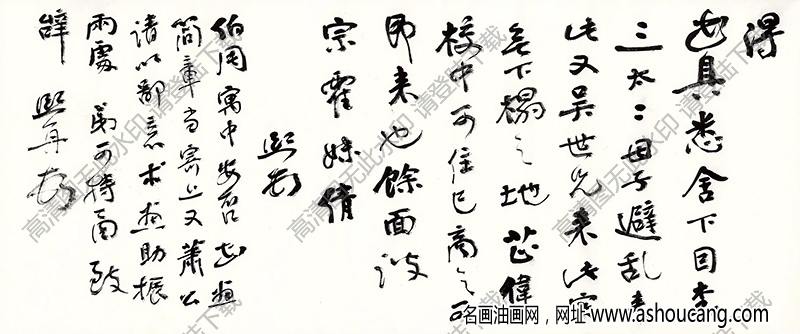 得
具悉舍下因李
三太二母子避乱来
此又吴世兄来此
无下榻之地芷偉
校中可住已商之可
即来也餘面談
宗霍妹倩
熙頓
伯周寓中安否
簡章当寄上又蕭公
諸以鄙意求助振
兩處弟可持函致
辭 熙再頓
高清图无此水印 请登陆下载
名画油画网，网址www.ashoucang.com